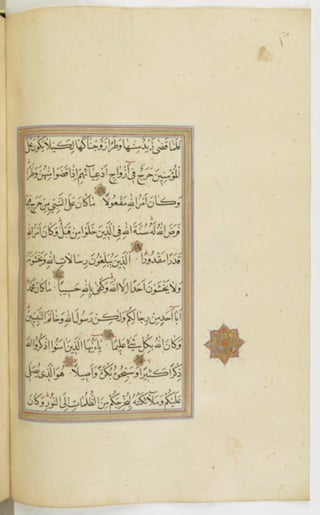 فلما قضى زيد منها وطرا زوجناكها لكيلا يكون على
المؤمنين حرج في أزواج أدعيائهم إذا قضوا منهن وطرا
وكان أمر الله مفعولا ما كان على النبي من حرج فيما
فرض الله له سنة الله في الذين خلوا من قبل وكان أمر الله
قدرا مقدورا الذين يبلغون رسالات الله ويخشونه
ولا يخشون أحدا إلا الله وكفى بالله حسيبا ما كان محمد
أبا أحد من رجالكم ولكن رسول الله وخاتم النبيين
وكان الله بكل شيء عليما يا أيها الذين آمنوا اذكروا الله
ذكرا كثيرا وسبحوه بكرة وأصيلا هو الذي يصلي
عليكم وملائكته ليخرجكم من الظلمات إلى النور وكان